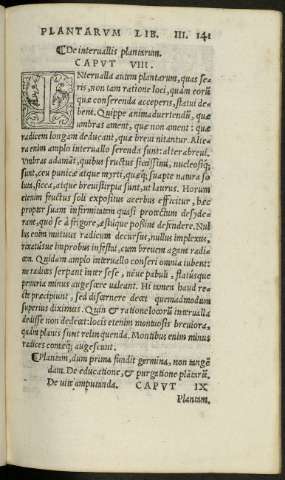 PLANTARVM LIB. III. 141
De interuallis plantarum.
CAPVT VIII.
INterualla autem plantarum, quas seris,
non tam ratione loci, quàm eorũ
quæ conserenda acceperis, statui debent.
Quippe animaduertendũ, quæ
umbras ament, quæ non ament: quæ
radicem longam deducant, quæ breui nitantur. Altera
enim amplo interuallo serenda sunt: altera breui.
Vmbras adamãt, quibus fructus siccissimi, nucleosiq́;
sunt, ceu punicæ atque myrti, quæq́; suapte natura soluta,
sicca, atque breuistirpia sunt, ut laurus. Horum
etenim fructus soli expositus acerbus efficitur, hæc
propter suam infirmitatem quasi protectum desyderant,
quò se à frigore, æstuque possint defendere. Nullus
enim mutuus radicum decursus, nullus implexus,
rixatusue improbus infestat, cum breuem agant radicem.
Quidam amplo interuallo conseri omnia iubent:
ne radices serpant inter sese, néue pabuli, flatusque
penuria minus augescere ualeant. Hi tamen haud recte
præcipiunt, sed discernere decet quemadmodum
superius diximus. Quin & ratione locorũ interualla
dedisse non dedecet: locis etenim montuosis breuiora,
quàm planis sunt relinquenda. Montibus enim minus
radices conteq́; augescunt.
Plantam, dum prima fundit germina, non tangẽdam.
De educatione, & purgatione plãtarũ.
De uite amputanda. CAPVT IX
Plantam.